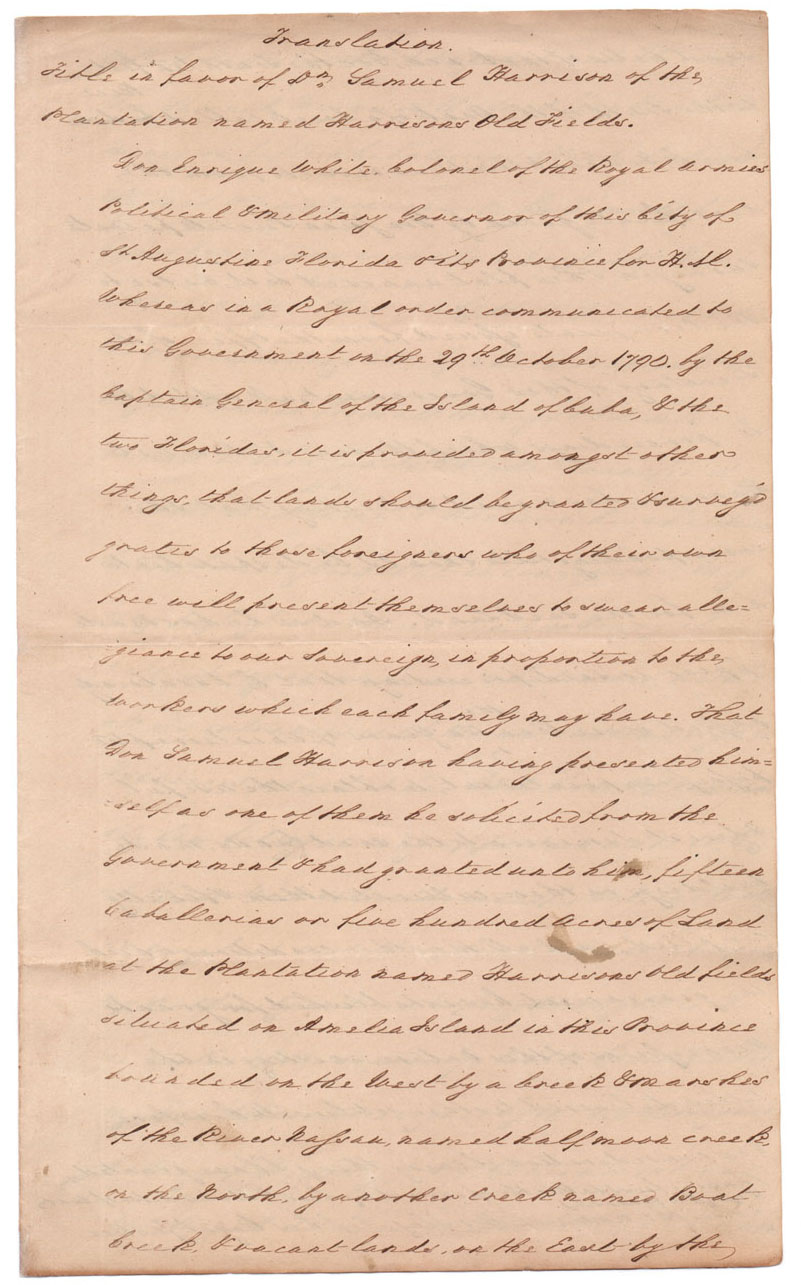 Translation.
Title in favor of Dn. Samuel Harrison of the
Plantation named Harrisons Old Fields.
Don Enrique White. Colonel of the Royal Armies
Political & Military Governor of this City of
St Augustine Florida & its Province for H. M.
Whereas in a Royal order communicated to
this Government on the 29th October 1790. by the
Captain General of the Island of Cuba, & the
two Floridas, it is provided amongst other
things, that lands should be granted & survey'd
gratis to those foreigners who of their own
free will present themselves to swear alle=
giance to our Sovereign, in proportion to the
workers which each family may have. That
Don Samuel Harrison having presented him=
self as one of them he solicited from the
Government & had granted unto him, fifteen
Caballerias or five hundred Acres of Land
at the Plantation named Harrisons Old fields
situated on Amelia Island in this Province
bounded on the West by a Creek & Marshes
of the River Nassau, named half moon creek,
on the North, by another Creek named Boat
Creek, & vacant lands, on the East by the